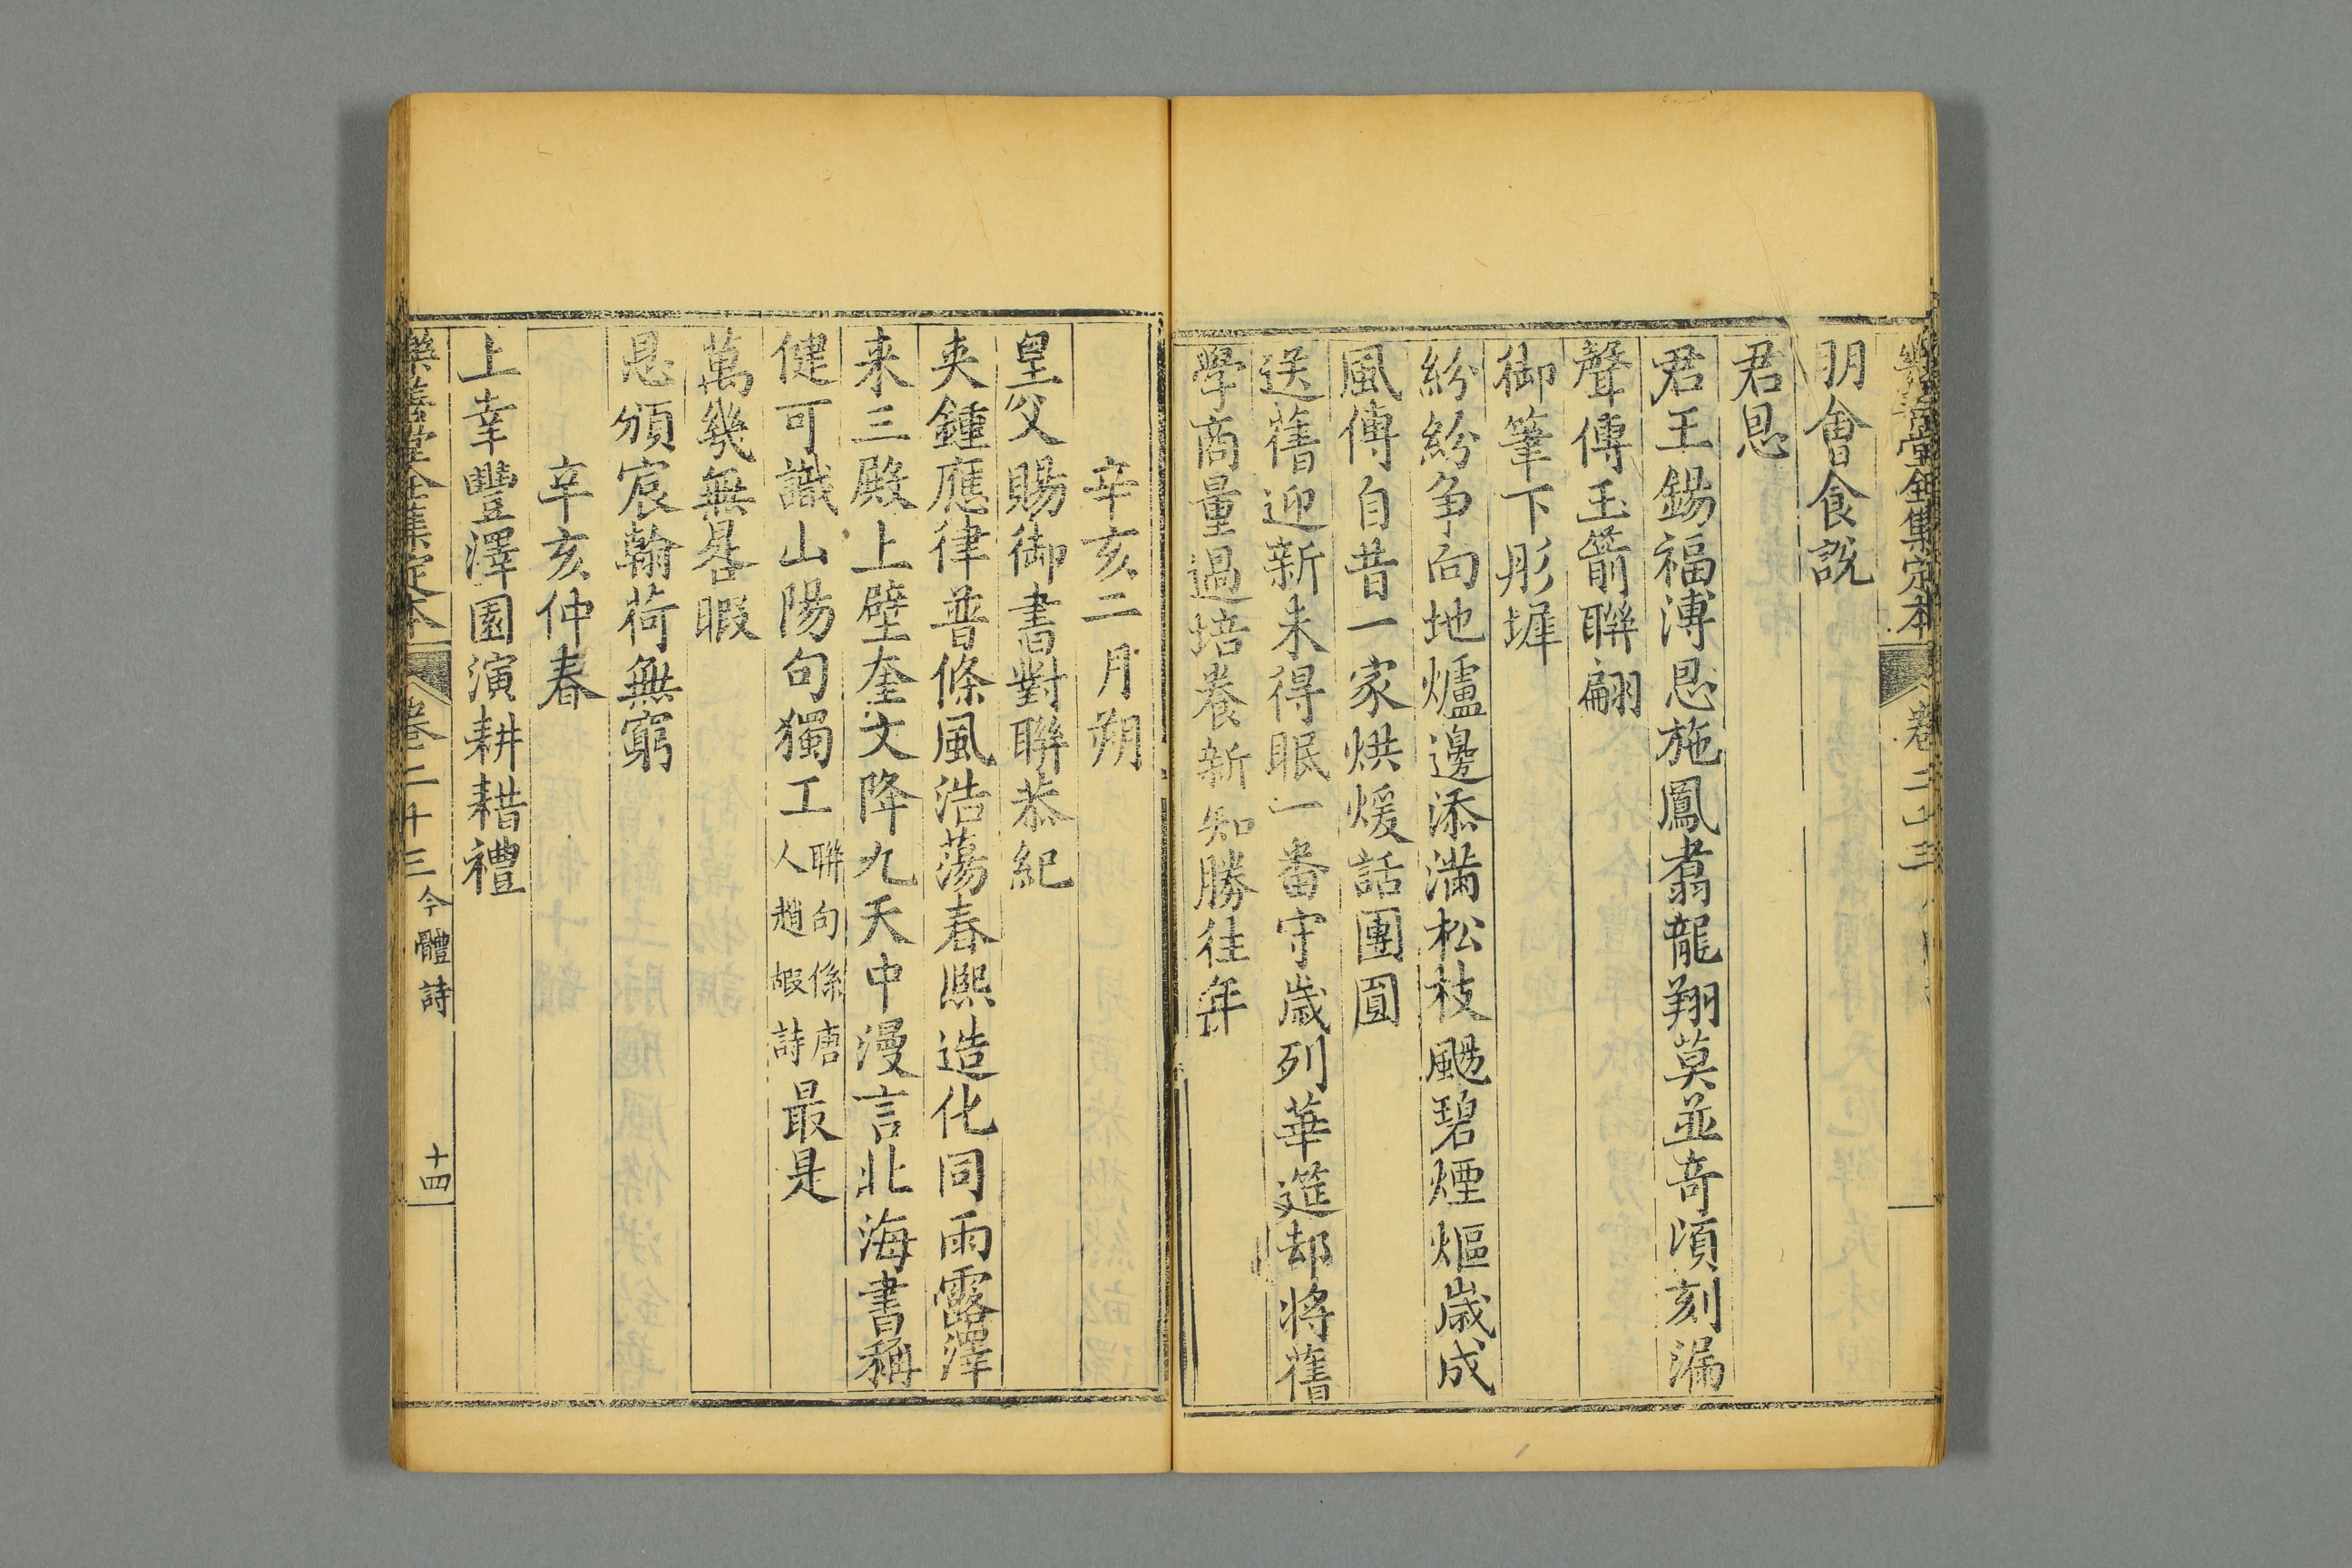 樂善堂全集定本 卷二十三
明會食說
君恩
君王錫福溥恩施鳳翥龍翔莫並奇頃刻漏
聲傳玉箭聯翩
御筆下彤墀
紛紛争向地爐邊添滿松枝颺碧煙熰歲成
風傳自昔一家烘煖話團圓
送舊迎新未得眠一番守歲列華筵却將舊
學商量過培養新知勝往年
辛亥二月朔
皇父賜御書對聯恭紀
夾鍾應律普條風浩蕩春熙造化同雨露澤
来三殿上壁奎文降九天中漫言北海書稱
健可識山陽句獨工聯句係唐人趙嘏詩最是
萬幾無晷暇
恩頒宸翰荷無窮
辛亥仲春
上幸豐澤園演耕耤禮
樂善堂全集定本 卷二十三 今體詩 十四